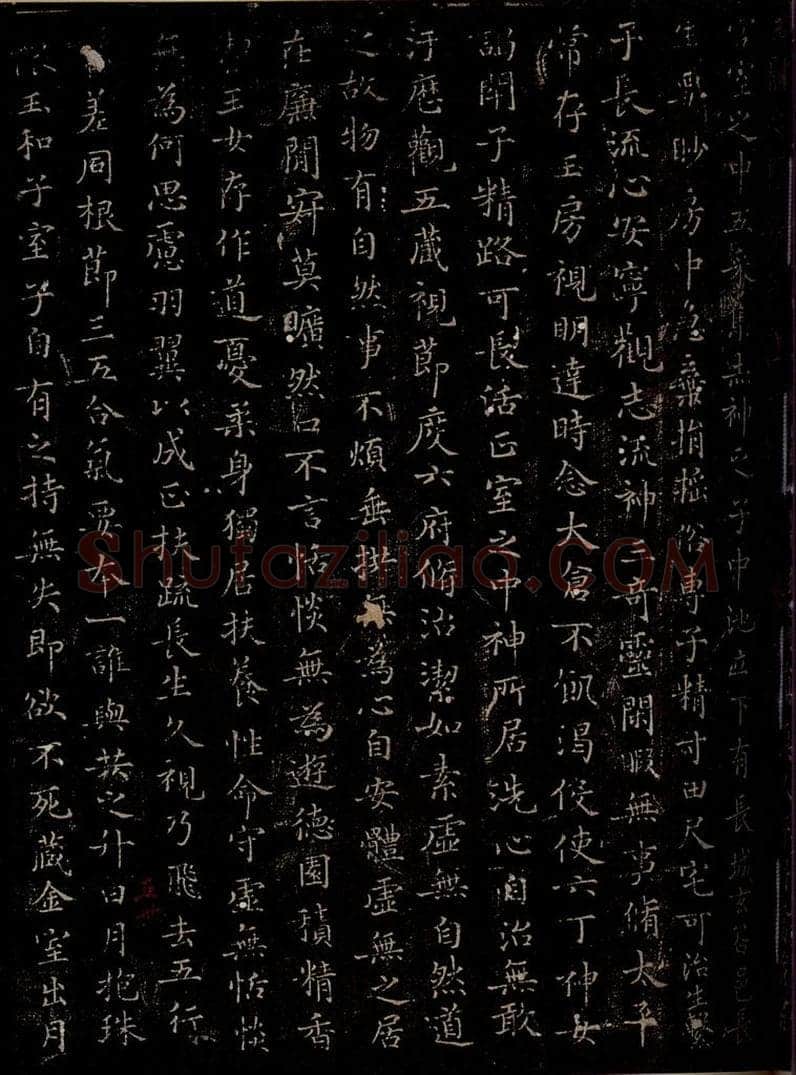 室之中五采集赤神之子中池立下有長城玄谷邑長
生要眇房中急棄捐搖俗專子精寸田尺宅可治生繫
子長流心安寧觀志流神三奇靈閑暇無事脩太平
常存玉房視明達時念大倉不飢渴役使六丁神女
謁閉子精路可長活正室之中神所居洗心自治無敢
汙歷觀五藏視節度六府脩治潔如素虛無自然道
之故物有自然事不煩垂拱無為心自安體虛無之居
在廉閒寂莫曠然口不言恬惔無為遊德園積精香
潔玉女存作道憂柔身獨居扶養性命守虛無恬惔
無為何思慮羽翼以成正扶疏長生久視乃飛去五行
差同根節三五合氣要本一誰與共之升日月抱珠
懷玉和子室子自有之持無失即欲不死藏金室出月
Shufaziliao.COM